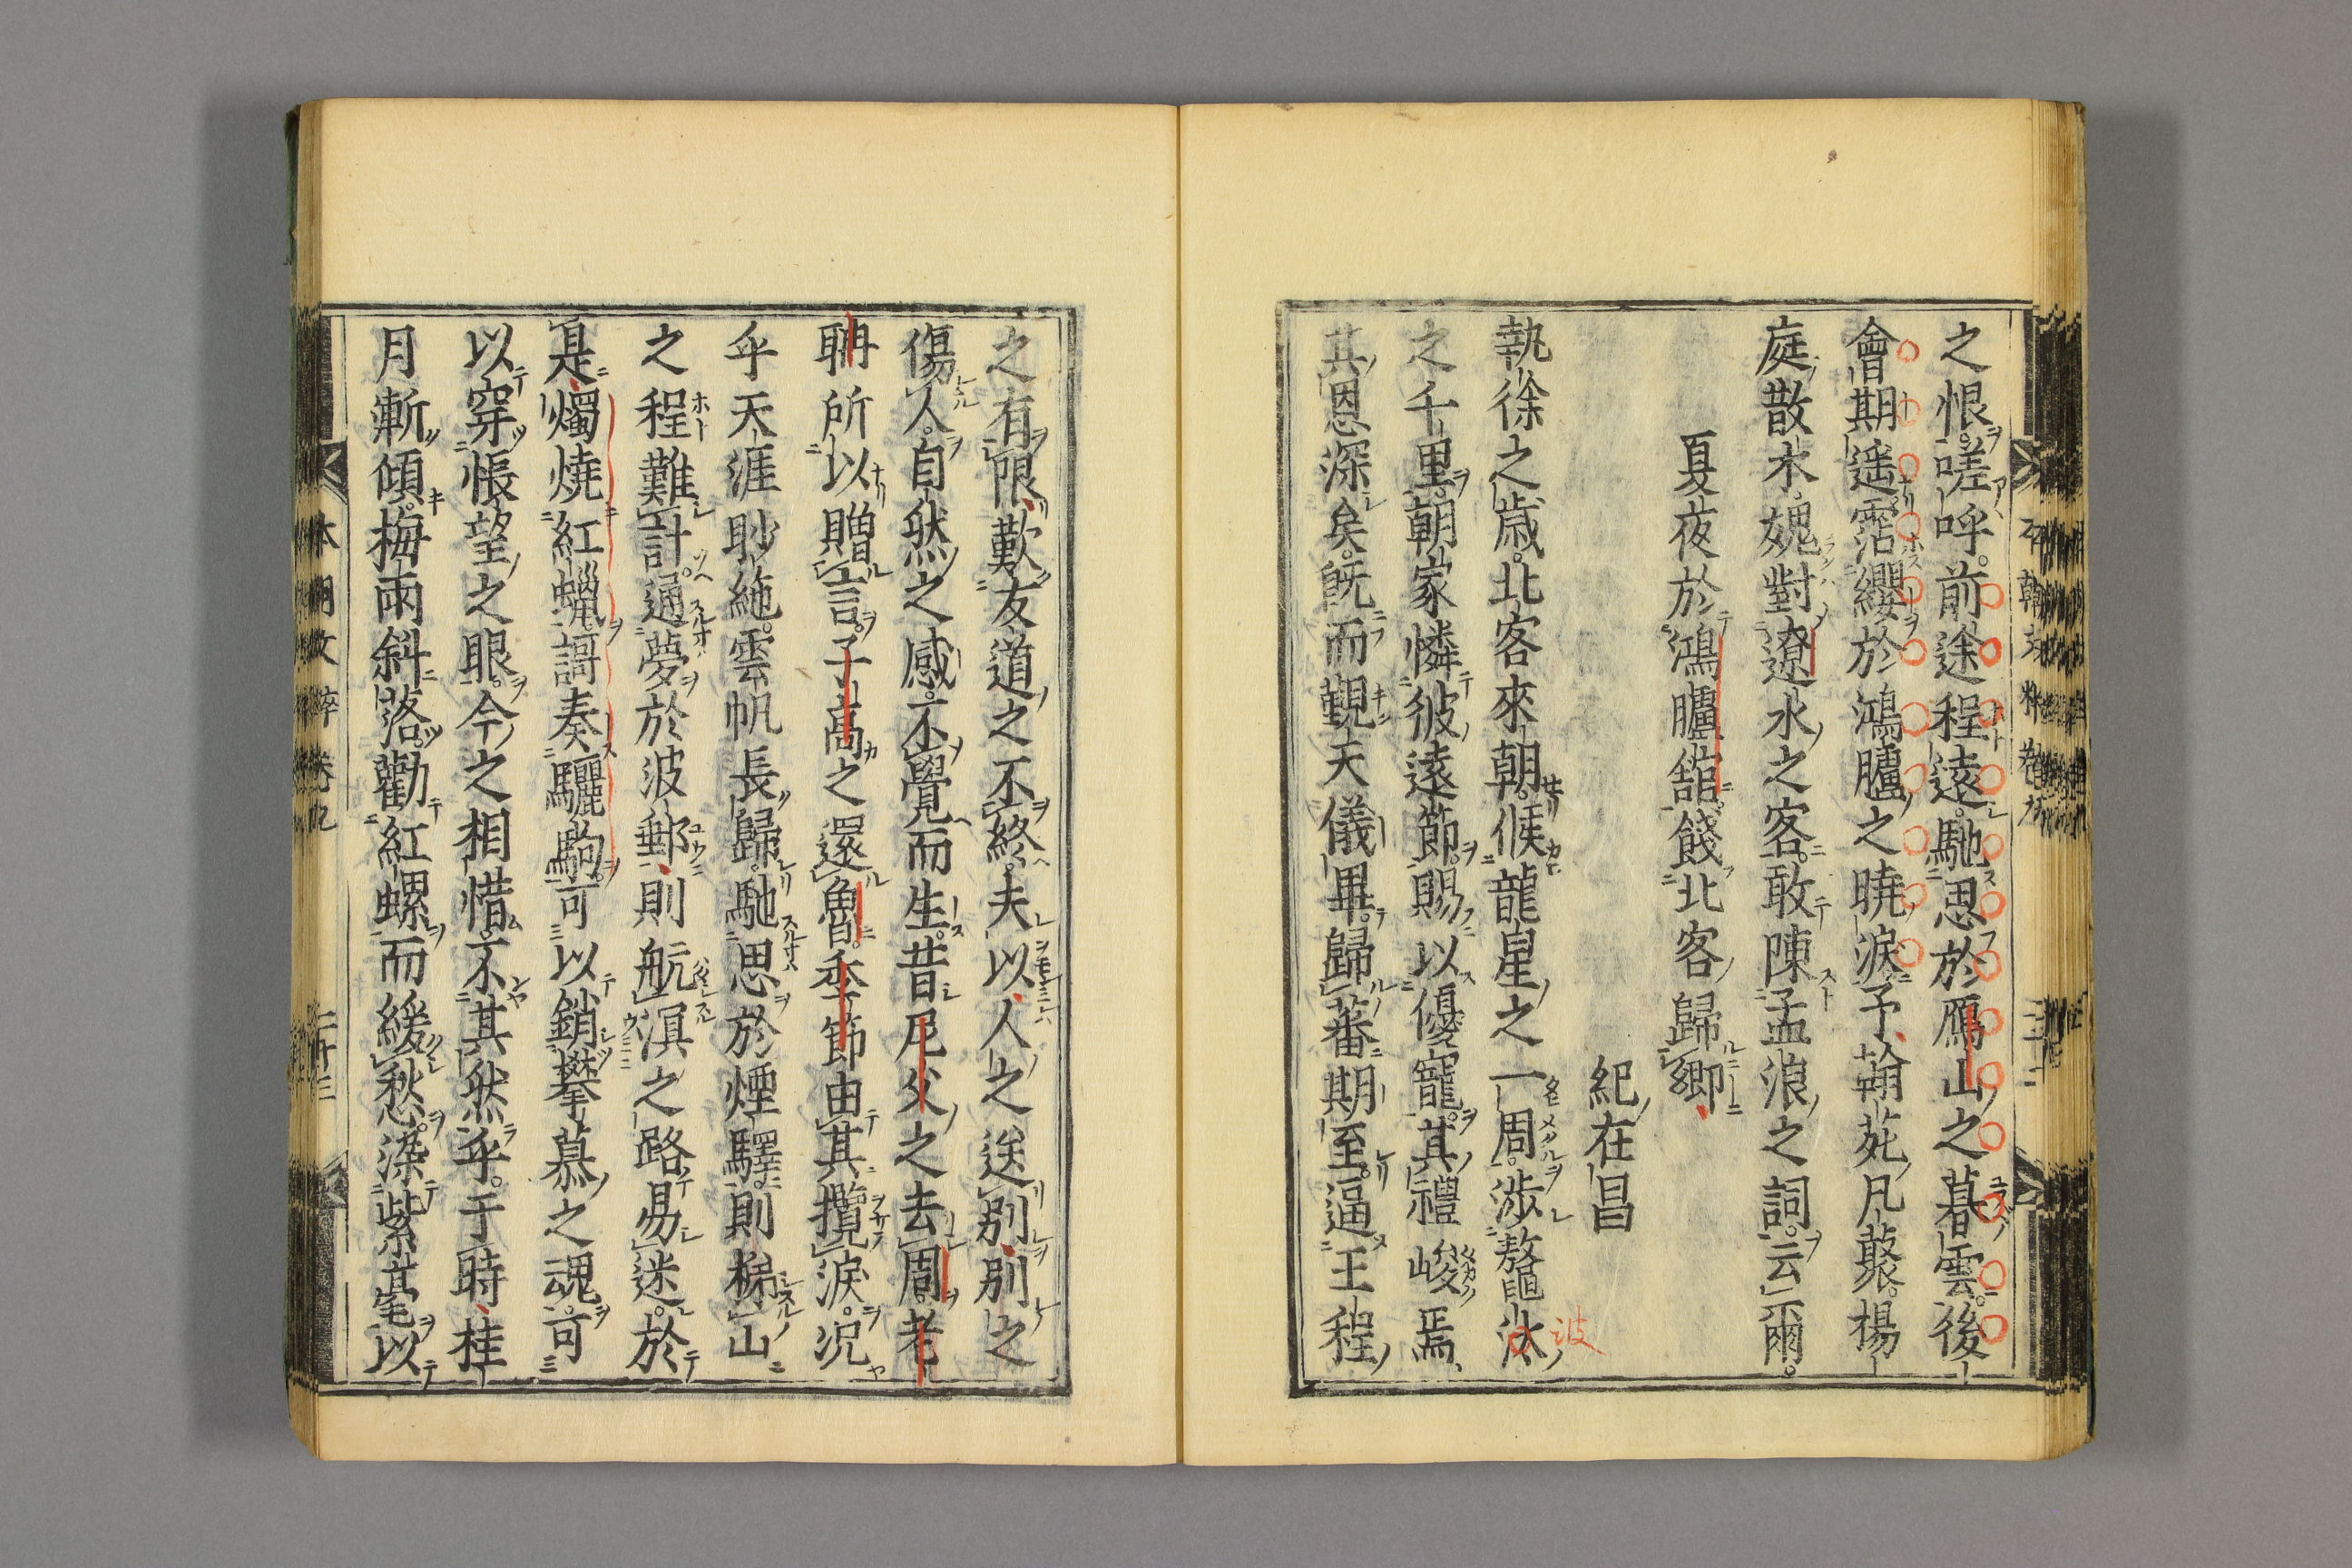 之恨。嗟呼。前途程遠。馳思於鴈山之暮雲。後
會期遥。霑纓於鴻臚之曉淚。予翰苑凡藂。楊
庭散木。媿對遼水之客。敢陳孟浪之詞。云爾。
夏夜於鴻臚舘。餞北客歸鄉
紀在昌
執徐之歳。北客來朝。候龍星之一周。渉鼇
之千里。朝家憐彼遠節。賜以優寵。其禮峻焉、
其恩深矣。既而覲天儀畢。歸蕃期至。逼王程
之有限。歎友道之不終。夫以人之送別。別之
傷人。自然之感。不覺而生。昔尼父之去周。老
聃所以贈言。子高之還魯。季節由其攬淚。況
乎天涯眇絁。雲帆長歸。馳思於煙驛。則梯山
之程難計。通夢於波郵、則航溟之路易迷。於
是燭燒紅蠟。謌奏驪駒。可以銷攀慕之魂。可
以穿悵望之眼。今之相惜。不其然乎。于時桂
月漸傾。梅雨斜落。勸紅螺而緩愁。染紫毫以
本朝文粹卷九
二十三